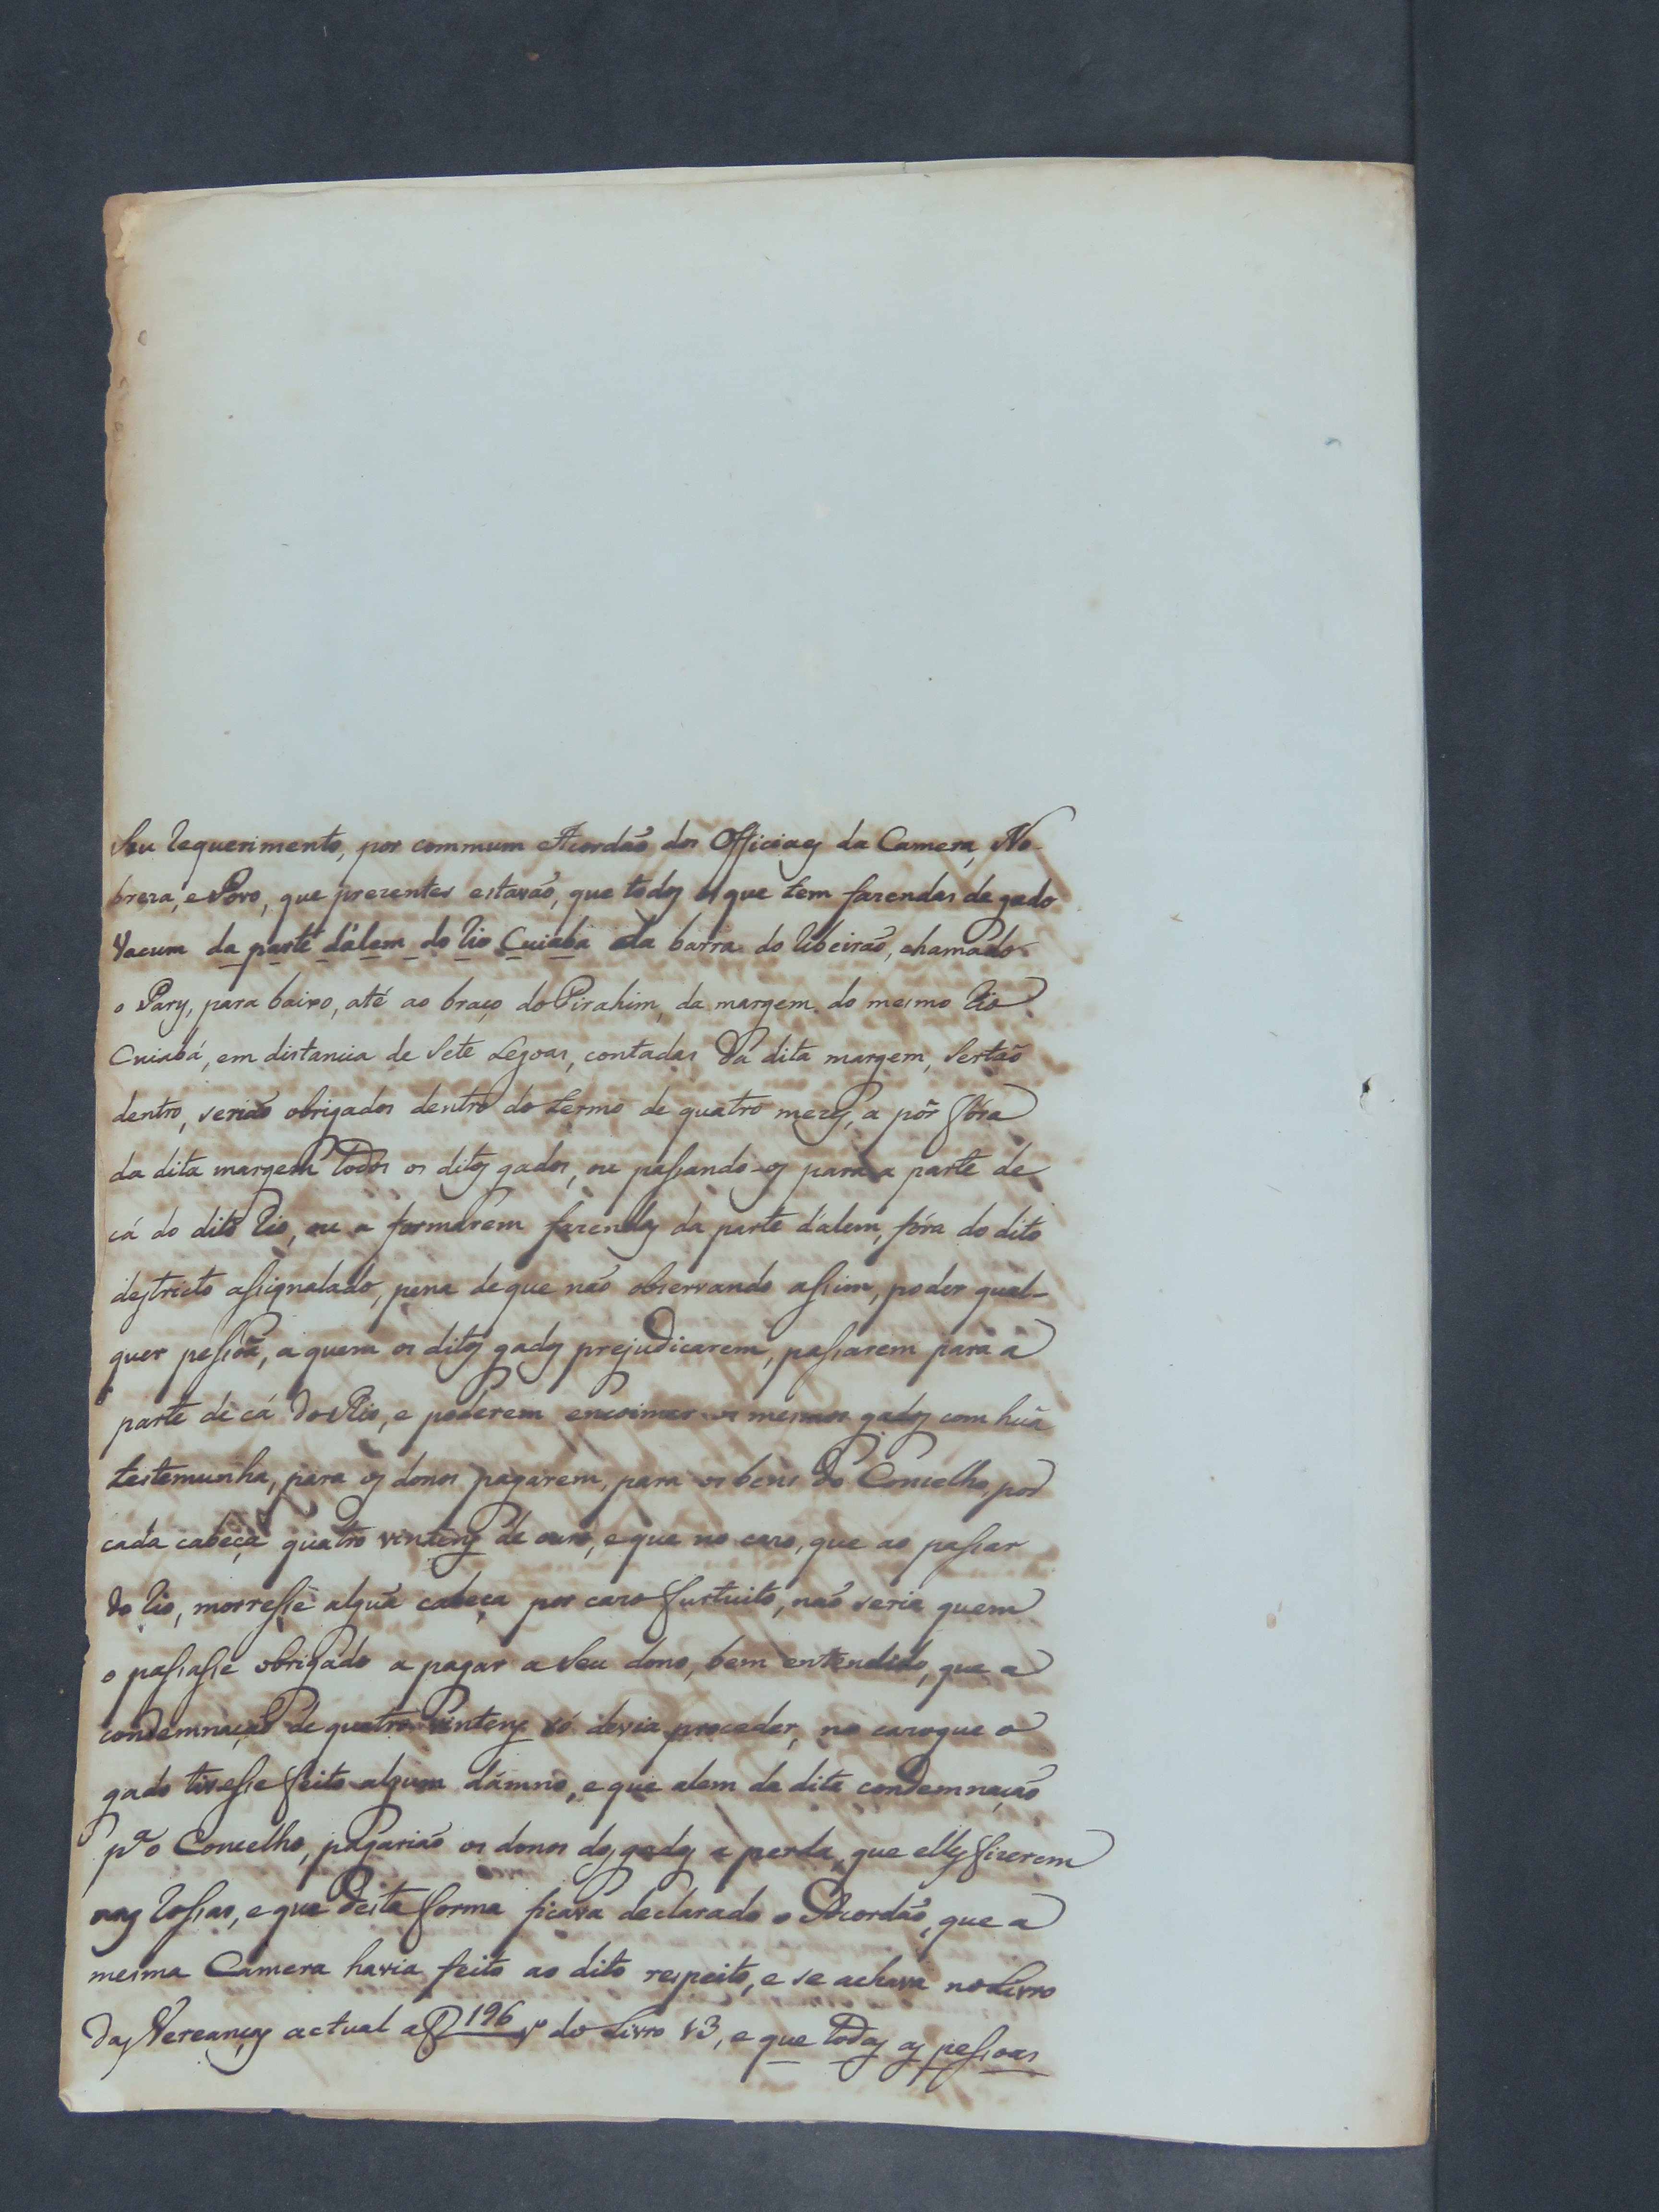 Seu requerimento, por commum Acordão dos Officiaes da Camera, No-
breza, e Povo, que prezentes estavão, que todos os que tem fazendas de gado
Vacum da parte d'álem do rio Cuiabá da barra do ribeirão, chamado
o Pary, para baixo, até ao braço do Pirahim, da margem do mesmo Rio
Cuiabá, em distancia de Sete Legoas, contadas da dita margem, Sertão
dentro, serião obrigados dentro do termo de quatro mezes, a pôr fóra
da dita margem todos os ditos gados, ou passando-os para a parte de
cá do dito Rio, ou a formarem fazendas da parte d'alem, fóra do dito
destricto assignalado, pena de que não observando assim, poder qual-
quer pessoa, a quem os ditos gados prejudicarem, passarem para a
parte de cá do Rio, e poderem encoimar os mesmos gados com huã
testemunha, para os donos pagarem, para os bens do Concelho, por
cada cabeça quatro vinténs de ouro, e que no cazo, que ao passar
do rio, morresse alguã cabeça por cazo furtuito, não seria quem
o passasse obrigado a pagar a Seu dono, bem entendido, que a
condemnação de quatro vintens só devia proceder, no cazo que o
gado tivesse feito algum dámno, e que alem da dita condemnação
pª o Concelho, pagarião os donos dos gados a perda, que elles fizerem
nas rossas, e que desta forma ficava declarado o Acordão, que a
mesma Camera havia feito ao dito respeito, e se achava no Livro
das Vereanças actual a f 196 vº do Livro 13, e que todas as pessoas